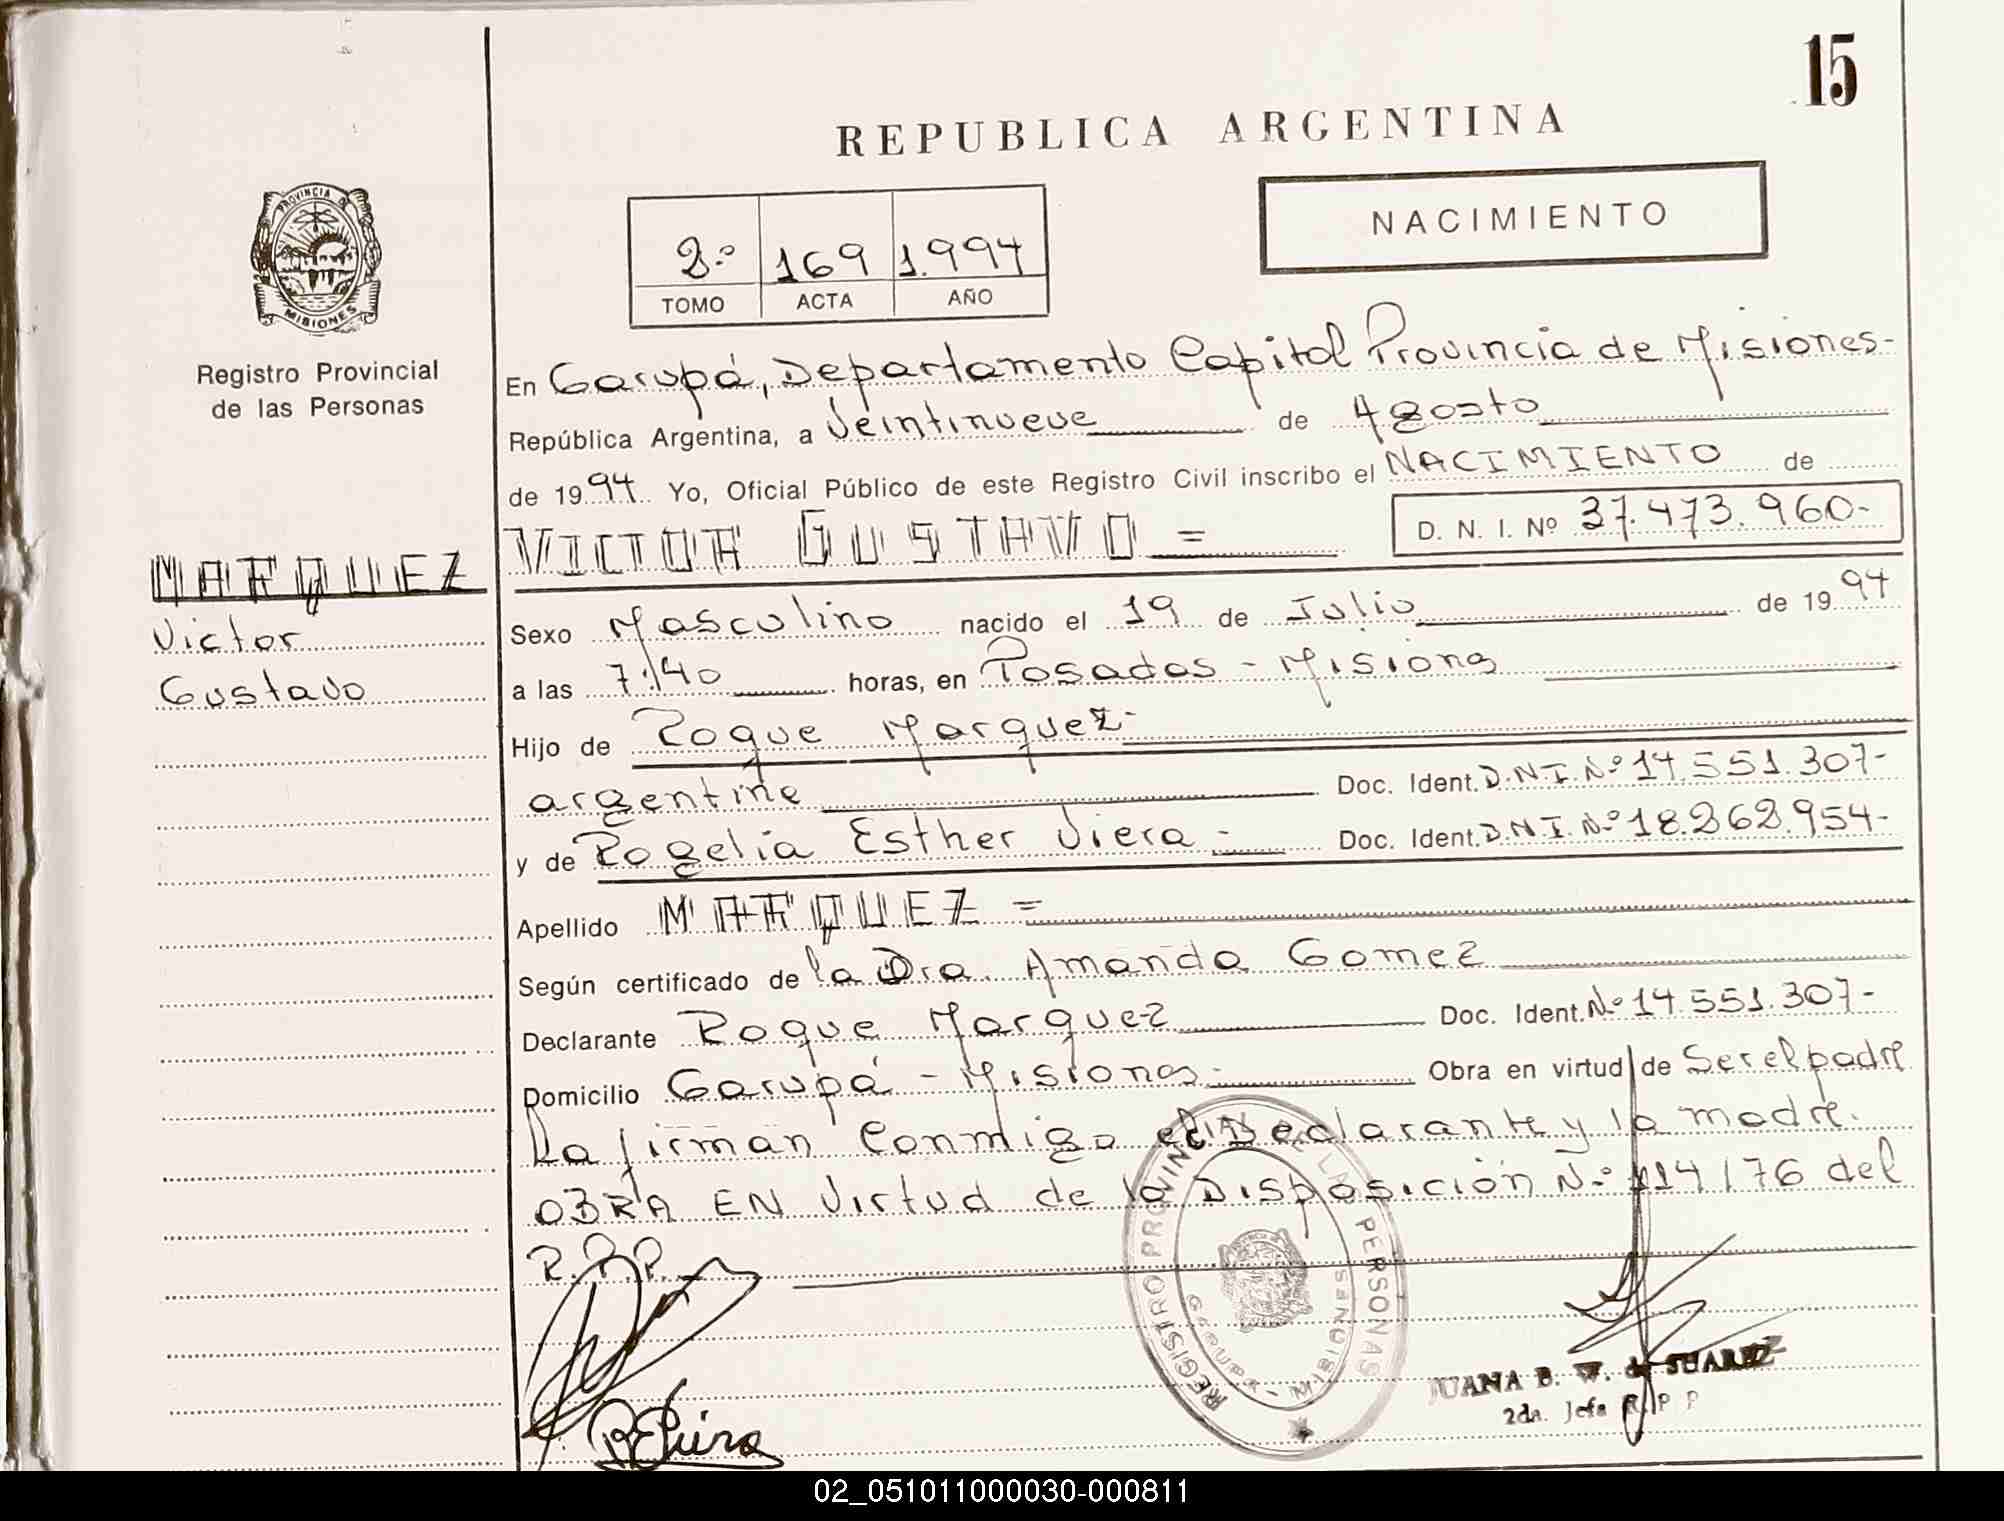 15
REPUBLICA ARGENTINA
NACIMIENTO
PROVINCIA DE
MISIONES
Registro Provincial
de las Personas
2º 169 1.994
TOMO ACTA AÑO
En Garupá, Departamento Capital Provincia de Misiones-
República Argentina, a Veintinueve de Agosto
de 1994 Yo, Oficial Público de este Registro Civil inscribo el NACIMIENTO de
VICTOR GUSTAVO = D. N. I. Nº 37.473.960-
MARQUEZ
Victor
Gustavo
Sexo Masculino nacido el 19 de Julio de 1994
a las 7:40 horas, en Posadas - Misiones
Hijo de Roque Marquez-
argentino Doc. Ident. D.N.I. Nº 14.551.307-
y de Rogelia Esther Viera - Doc. Ident. D.N.I. Nº 18.262.954-
Apellido MARQUEZ =
Según certificado de la Dra. Amanda Gomez
Declarante Roque Marquez Doc. Ident. Nº 14.551.307-
Domicilio Garupá - Misiones- Obra en virtud de Ser el padre
La firman Conmigo el Declarante y la madre.
OBRA EN Virtud de la Disposición Nº 114/76 del
R.P.P.
REGISTRO PROVINCIAL DE LAS PERSONAS
MISIONES
JUANA B. W. de SUAREZ
2da. Jefa R.P P
02_051011000030-000811